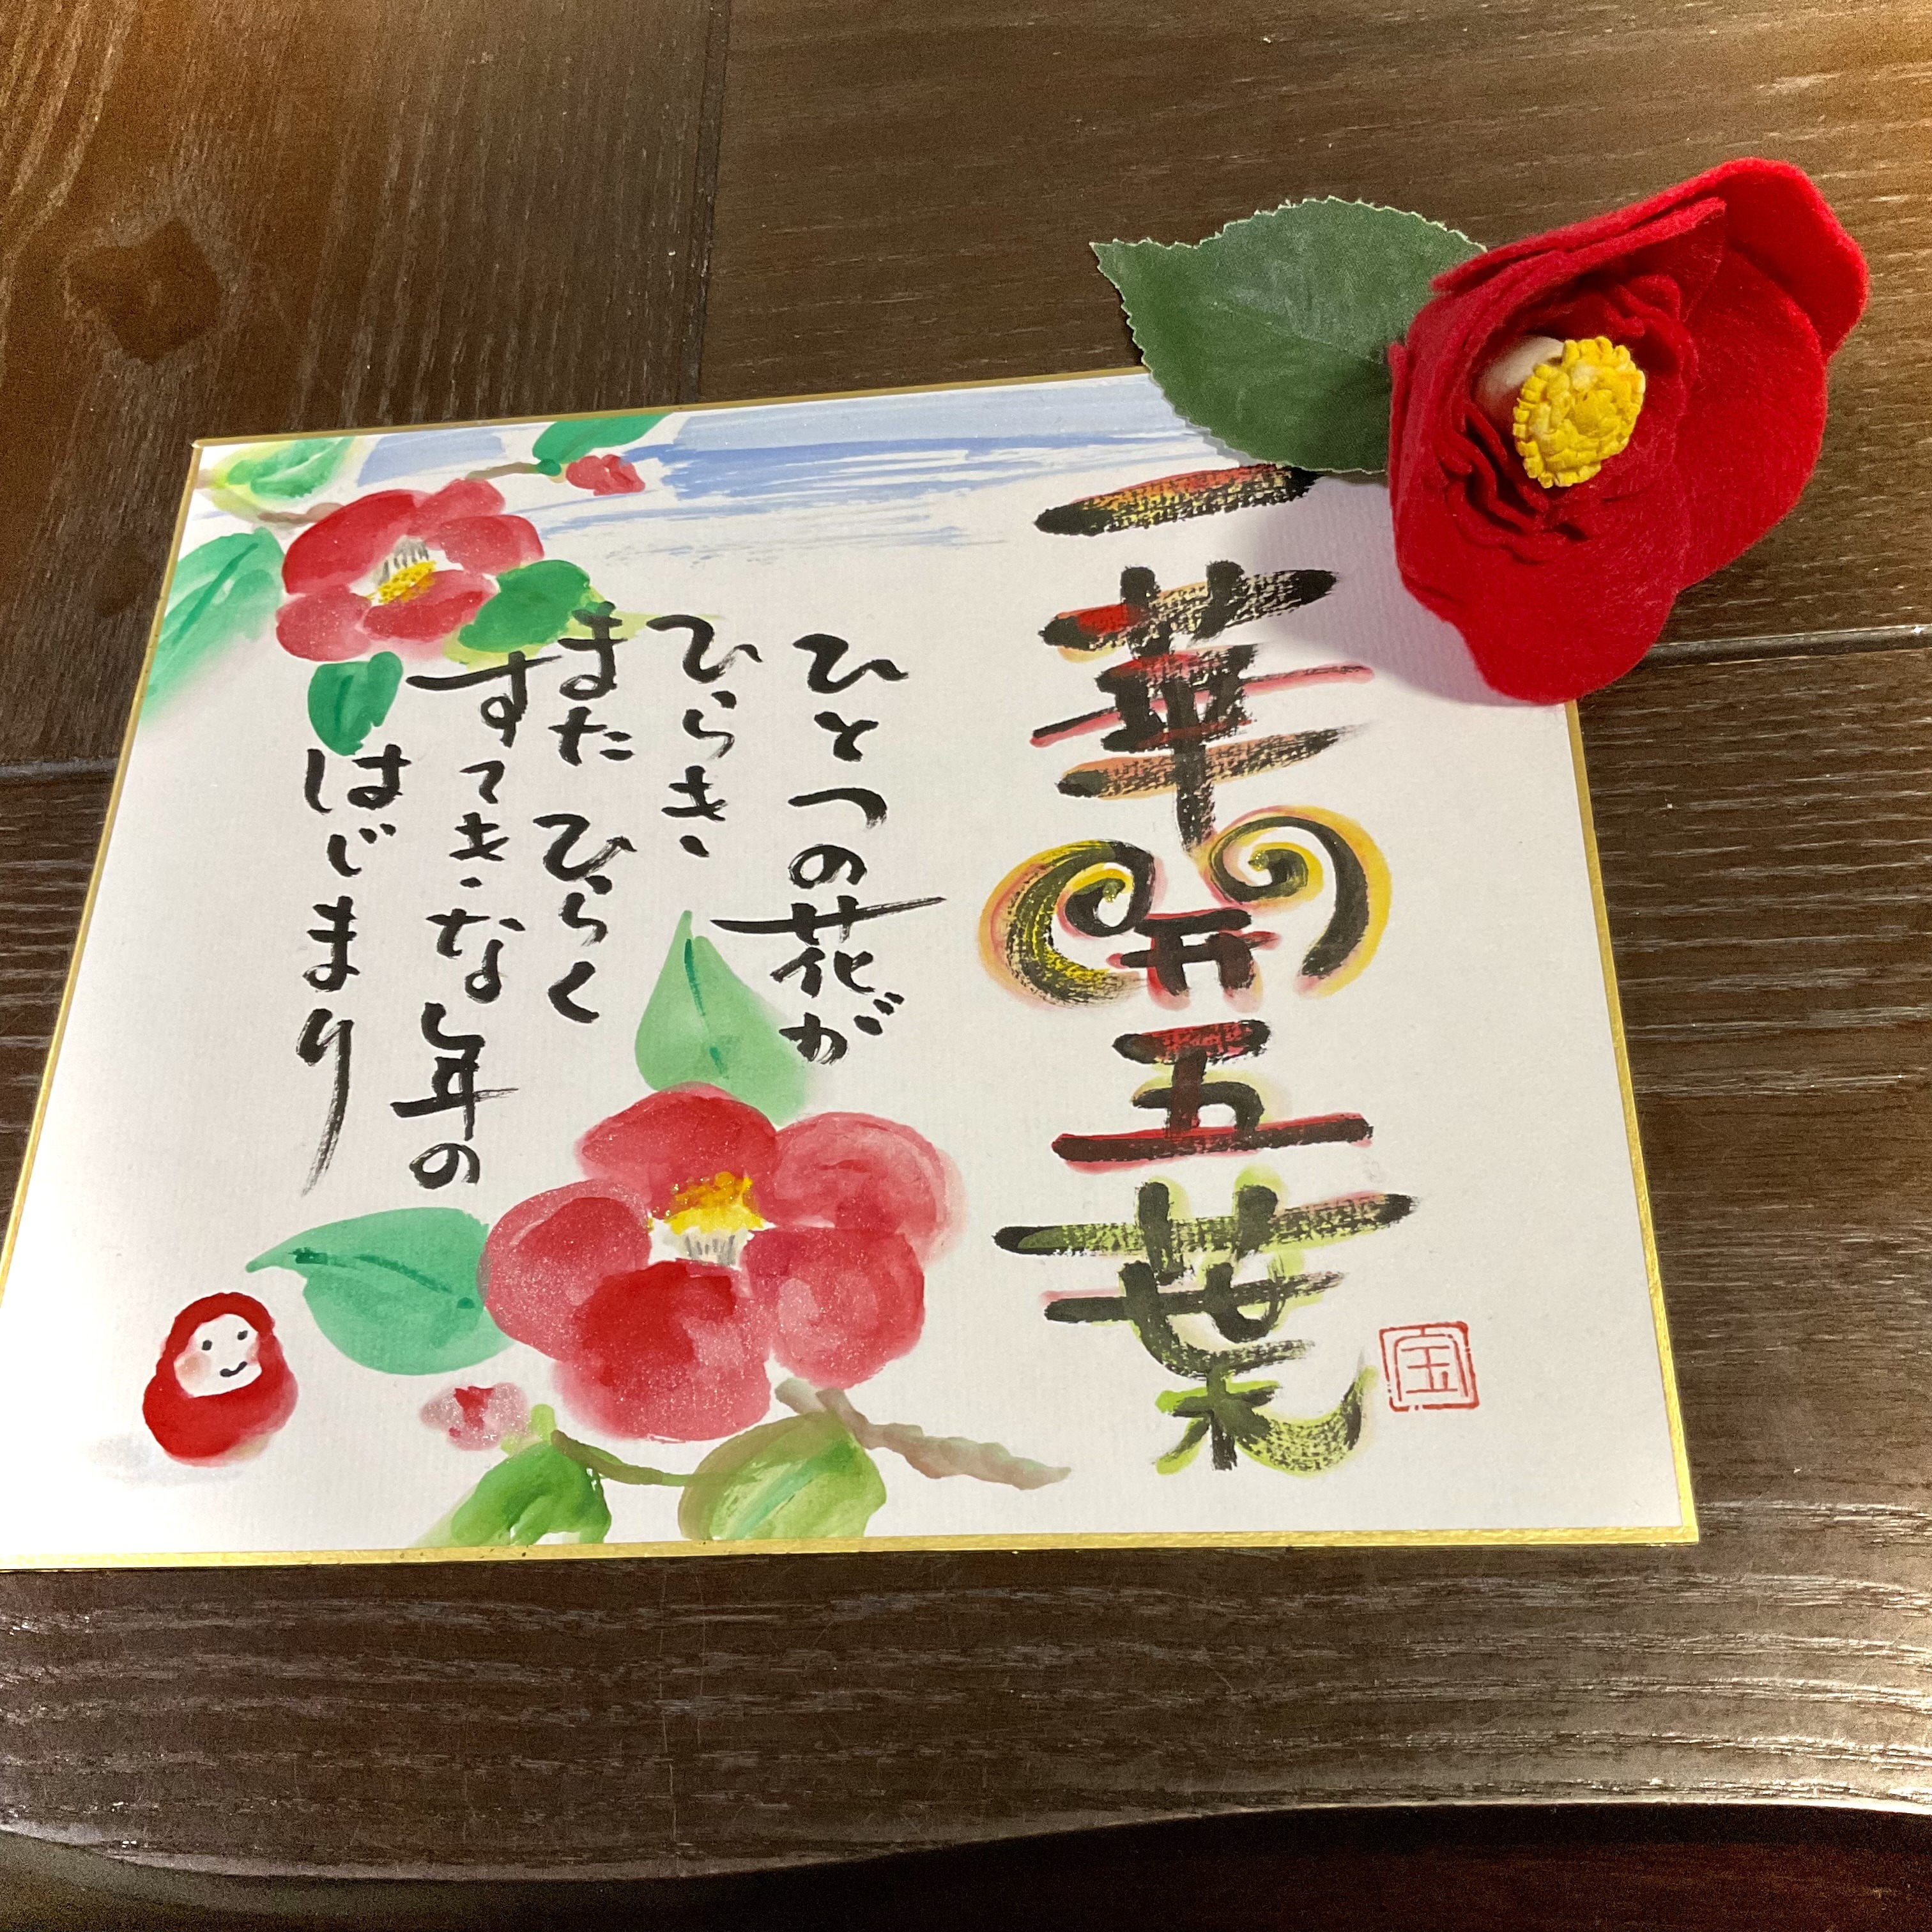 一華開五葉
ひとつの花が
ひらき、
また ひらく
すてきな年の
はじまり